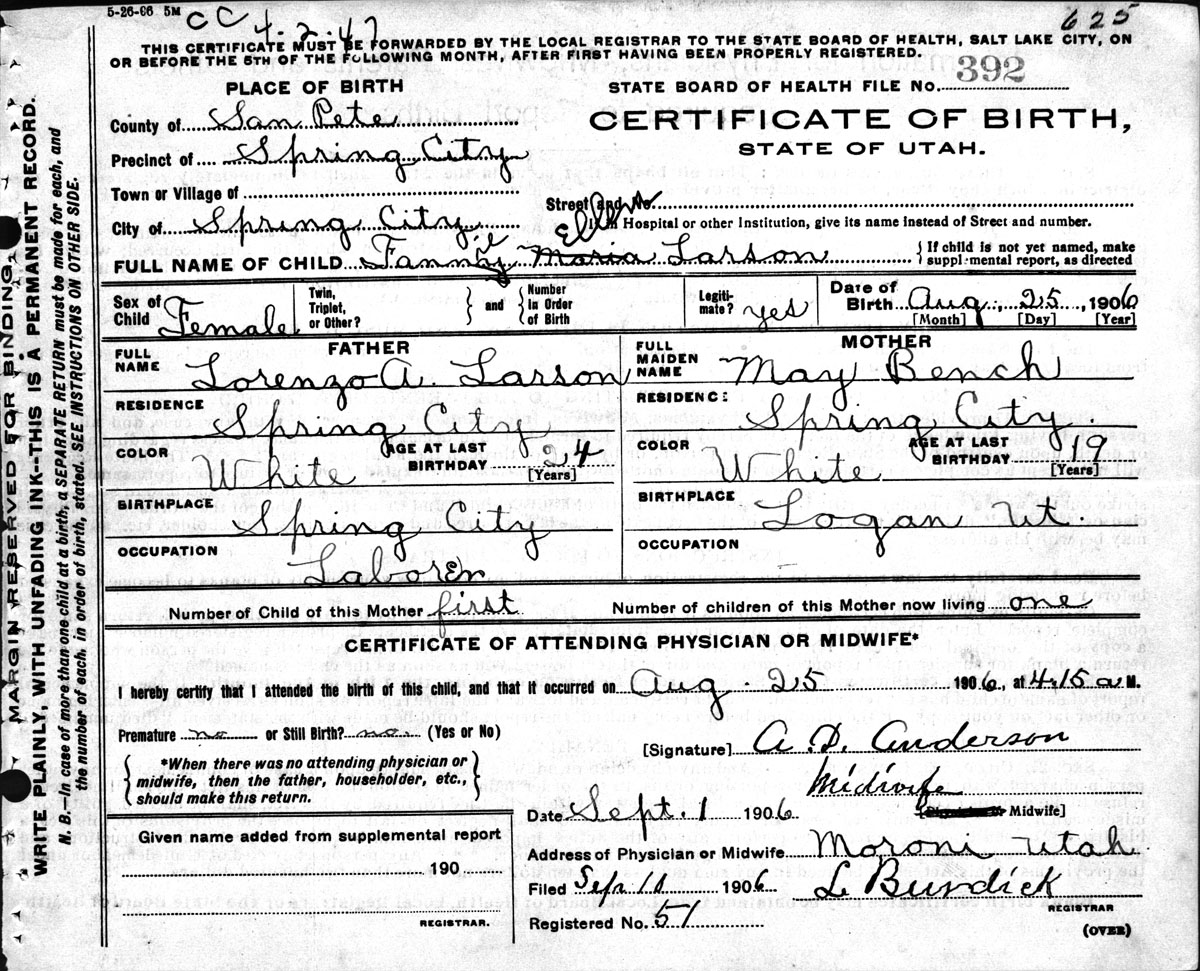 5-26-06 5M
CC 4-2-47
625
THIS CERTIFICATE MUST BE FORWARDED BY THE LOCAL REGISTRAR TO THE STATE BOARD OF HEALTH, SALT LAKE CITY, ON
OR BEFORE THE 5TH OF THE FOLLOWING MONTH, AFTER FIRST HAVING BEEN PROPERLY REGISTERED.
PLACE OF BIRTH
STATE BOARD OF HEALTH FILE NO. 392
County of San Pete
CERTIFICATE OF BIRTH,
Precinct of Spring City
STATE OF UTAH.
Town or Village of
Street and No
City of Spring City
Hospital or other Institution, give its name instead of Street and number.
Ellen
FULL NAME OF CHILD Fanny Maria Larson
If child is not yet named, make
supplemental report, as directed
Sex of Child Female
Twin, Triplet, or Other?
and
Number in Order of Birth
Legiti-mate? yes
Date of Birth Aug., 25, 1906
[Month] [Day] [Year]
FATHER
MOTHER
FULL NAME Lorenzo A. Larson
FULL MAIDEN NAME May Bench
RESIDENCE Spring City
RESIDENCE Spring City
COLOR White
AGE AT LAST BIRTHDAY 24 [Years]
COLOR White
AGE AT LAST BIRTHDAY 19 [Years]
BIRTHPLACE Spring City
BIRTHPLACE Logan Ut.
OCCUPATION Laborer
OCCUPATION
Number of Child of this Mother first
Number of children of this Mother now living one
CERTIFICATE OF ATTENDING PHYSICIAN OR MIDWIFE*
I hereby certify that I attended the birth of this child, and that it occurred on Aug. 25 1906, at 4.15 a M.
Premature no or Still Birth? no. (Yes or No)
[Signature] A. D. Anderson
*When there was no attending physician or
midwife, then the father, householder, etc.,
should make this return.
Midwife
[Physician or Midwife]
Date Sept. 1 1906
Given name added from supplemental report
190
REGISTRAR.
Address of Physician or Midwife Moroni Utah
Filed Sep. 10 1906 L Burdick
REGISTRAR
Registered No. 51
(OVER)
MARGIN RESERVED FOR BINDING
WRITE PLAINLY, WITH UNFADING INK--THIS IS A PERMANENT RECORD.
N. B.—In case of more than one child at a birth, a SEPARATE RETURN must be made for each, and
the number of each, in order of birth, stated. SEE INSTRUCTIONS ON OTHER SIDE.